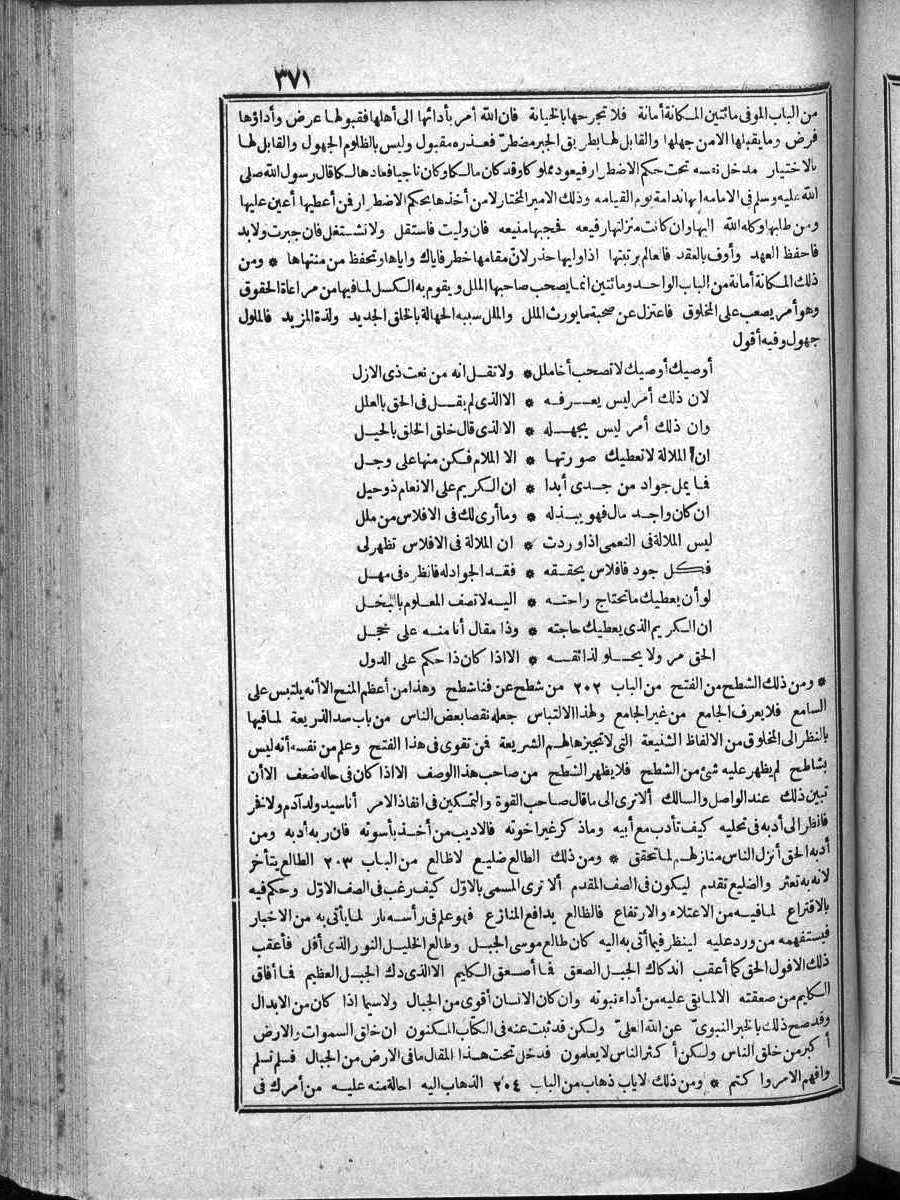 ٣٧١
من الباب الموفى مائتين المكانة أمانة فلا تجرحها بالخيانة فان الله أمر بأدائها الى أهلها فقبولها عرض وأداؤها
فرض وما يقبلها الا من جهلها والقابل لها بطريق الجبر مضطر فعذره مقبول وليس بالظلوم الجهول والقابل لها
بالاختيار مدخل نفسه تحت حكم الاضطرار فيعود مملوكا وقد كان مالكا وكان ناجيا فعاد هالكا قال رسول الله صلى
الله عليه وسلم فى الامامة انها ندامة يوم القيامه وذلك الامير المختار لا من أخذها بحكم الاضطرار فن أعطيها أعين عليها
ومن طلبها وكله الله اليها وان كانت منزلتها رفيعه فحجبها منيعه فان وليت فاستقل ولا تشتغل فان جبرت ولا بد
فاحفظ العهد وأوف بالعقد فالعالم برتبتها اذا وليها حذر لان مقامها خطر فاياك واياها وتحفظ من منتهاها * ومن
ذلك المكانة أمانة من الباب الواحد ومائتين انما يصحب صاحبها الملل ويقوم به الكسل لما فيها من مراعاة الحقوق
وهو أمر يصعب على المخلوق فاعتزل عن صحبة ما يورث الملل والملل سببه الجهالة بالخلق الجديد ولذة المزيد فالملول
جهول وفيه أقول
أوصيك أوصيك لا تصحب أخا ملل * ولا تقل انه من نعت ذى الازل
لان ذلك أمر ليس يعرفه * الا الذى لم يقل فى الحق بالعلل
وان ذلك أمر ليس يجهله * الا الذى قال خلق الخلق بالحيل
ان الملالة لا تعطيك صورتها * الا الملام فكن منها على وجل
فما يمل جواد من جدى أبدا * ان الكريم على الانعام ذو حيل
ان كان واجد مال فهو يبذله * وما أرى لك فى الافلاس من ملل
ليس الملالة فى النعمى اذا وردت * ان الملالة فى الافلاس تظهر لى
فكل جود فافلاس يحققه * فقد الجواد له فانظره فى مهل
لو أن يعطيك ما تحتاج راحته * اليه لا تصف المعلوم بالبخل
ان الكريم الذى يعطيك حاجته * وذا مقال أنا منه على خجل
الحق مر ولا يحلو لذائقه * الا اذا كان ذا حكم على الدول
* ومن ذلك الشطح من الفتح من الباب ٢٠٢ من شطح عن فنا شطح وهذا من أعظم المنح الا أنه يلتبس على
السامع فلا يعرف الجامع من غير الجامع ولهذا الالتباس جعله نقصا بعض الناس من باب سد الذريعة لما فيها
بالنظر الى المخلوق من الالفاظ الشنيعة التى لا تجيزها لهم الشريعة فمن تقوى فى هذا الفتح وعلم من نفسه أنه ليس
بشاطح لم يظهر عليه شئ من الشطح فلا يظهر الشطح من صاحب هذا الوصف الا اذا كان فى حاله ضعف الا أن
تبين ذلك عند الواصل والسالك ألا ترى الى ما قال صاحب القوة والتمكين فى انفاذ الامر أنا سيد ولد آدم ولا فخر
فانظر الى أدبه فى تحليه كيف تأدب مع أبيه وما ذكر غير اخوته فالاديب من أخذ بأسوته فان ربه أدبه ومن
أدبه الحق أنزل الناس منازلهم لما تحقق * ومن ذلك الطالع ضليع لا ظالع من الباب ٢٠٣ الطالع يتأخر
لانه به تعثر والضليع تقدم ليكون فى الصف المقدم ألا ترى المسمى بالاول كيف رغب فى الصف الاول وحكم فيه
بالاقتراع لما فيه من الاعتلاء والارتفاع فالظالع يدافع المنازع فهو علم فى رأسه نار لما يأتى به من الاخبار
فيستفهمه من ورد عليه لينظر فيما أتى به اليه كان طالع موسى الجبل وطالع الخليل النور الذى أفل فأعقب
ذلك الافول الحق كما أعقب اندكاك الجبل الصعق فما أصعق الكليم الا الذى دك الجبل العظيم فما أفاق
الكليم من صعقته الا لما بقى عليه من أداء نبوته وان كان الانسان أقوى من الجبال ولا سيما اذا كان من الابدال
وقد صح ذلك بالخبر النبوى عن الله العلى ولكن قد ثبت عنه فى الكتاب المكنون ان خلق السموات والارض
أكبر من خلق الناس ولكن أكثر الناس لا يعلمون فدخل تحت هذا المقال ما فى الارض من الجبال فسلم تسلم
وافهم الامر واكتم * ومن ذلك لاياب ذهاب من الباب ٢٠٤ الذهاب اليه احالة منه عليه من أمرك فى